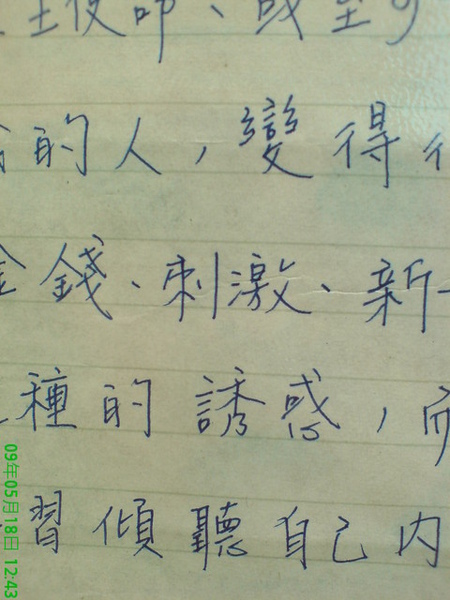 的人，變得
金錢、刺激、新
種的誘惑，而
習傾聽自己內
09年05月18日 12:43